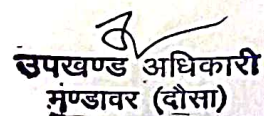 उपखण्ड अधिकारी
मुण्डावर (दौसा)